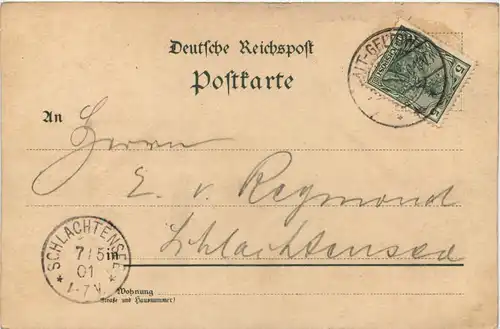 Deutsche Reichspost
Postkarte
ALT-GEL
5
5
An
Herrn
E. v. Reymond
Schlachtensee
in
* SCHLACHTENSEE *
7/5
01
1-7V.
Wohnung
(Straße und Hausnummer)